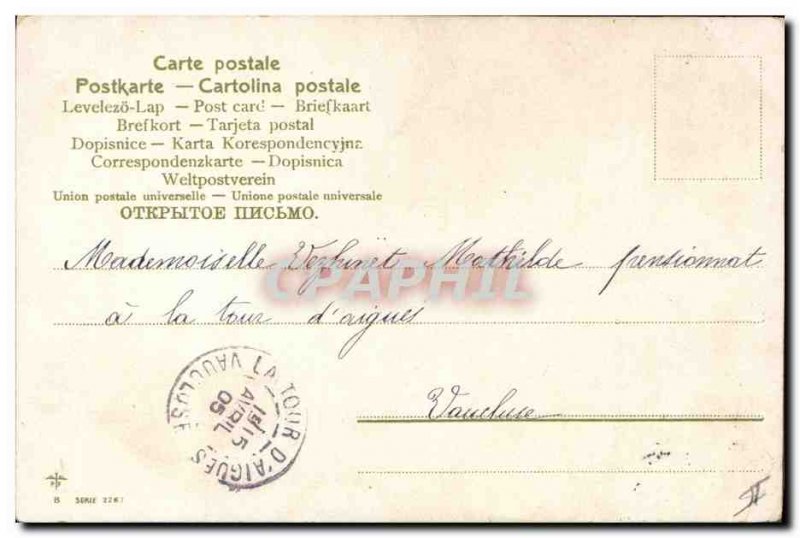 Carte postale
Postkarte — Cartolina postale
Levelező-Lap — Post card — Briefkaart
Brefkort — Tarjeta postal
Dopisnice — Karta Korespondencyjna
Correspondenzkarte — Dopisnica
Weltpostverein
Union postale universelle — Unione postale universale
ОТКРЫТОЕ ПИСЬМО.
Mademoiselle Mathilde pensionnat
CPAPHIL
à la tour d'aigues
Vaucluse
LA TOUR D'AIGUES
VAUCLUSE
15
AVRIL
05
B SERIE